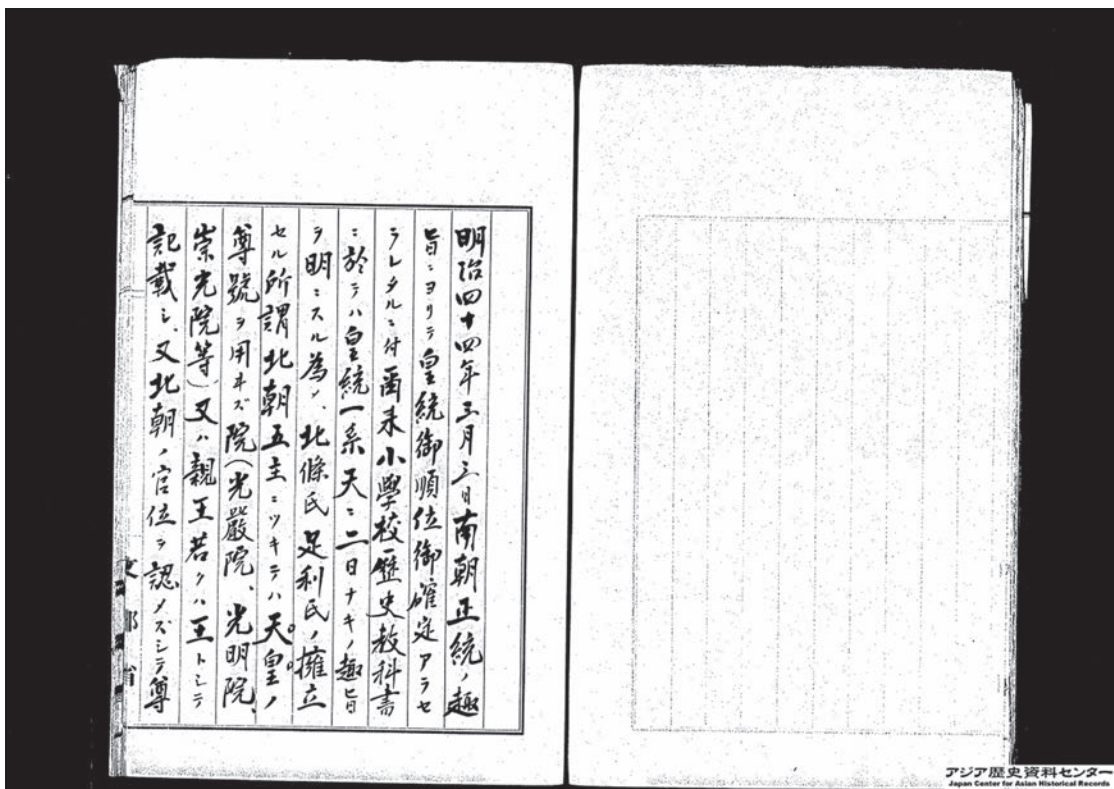 明治四十四年三月三日南朝正統ノ趣
旨ニヨリテ皇統御順位御確定アラセ
ラレタルニ付爾来小學校歷史教科書
ニ於テハ皇統一系天ニ二日ナキノ趣旨
ヲ明ニスル為メ、北條氏足利氏ノ擁立
セル所謂北朝五主ニツキテハ天皇ノ
尊號ヲ用ヰズ院(光嚴院、光明院、
崇光院等)又ハ親王若クハ王トシテ
記載シ、又北朝ノ官位ヲ認メズシテ尊
文部省
アジア歴史資料センター
Japan Center for Asian Historical Records